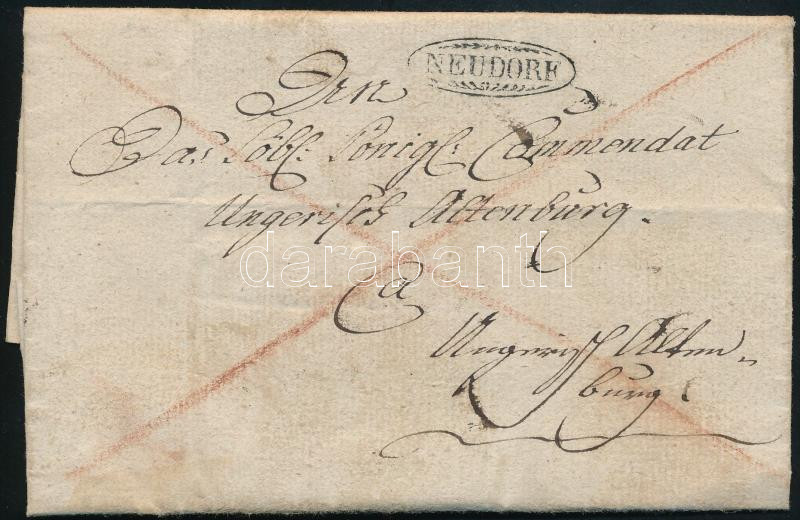 NEUDORF
Den
Das Löbl: Königl: Commendat
Ungerisch Altenburg.
a
Ungerisch Alten-
burg.
darabanth